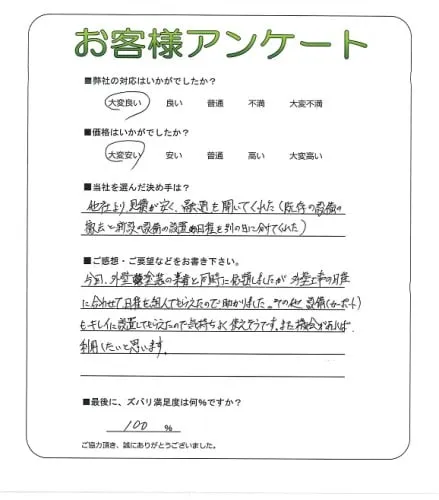 お客様アンケート
■弊社の対応はいかがでしたか？
大変良い 良い 普通 不満 大変不満
■価格はいかがでしたか？
大変安い 安い 普通 高い 大変高い
■当社を選んだ決め手は？
他社より見積が安く、融通を聞いてくれた(既存の設備の
撤去と新設の設備の設置の日程を別の日に分けてくれた)
■ご感想・ご要望などをお書き下さい。
今回、外壁塗装の業者と同時に依頼しましたが外壁工事の日程
に合わせて日程を組んでもらえたので助かりました。その他設備(カーポート)
もキレイに設置してもらえたので気持ちよく使えそうです。また機会があれば
利用したいと思います。
■最後に、ズバリ満足度は何%ですか？
100 %
ご協力頂き、誠にありがとうございました。